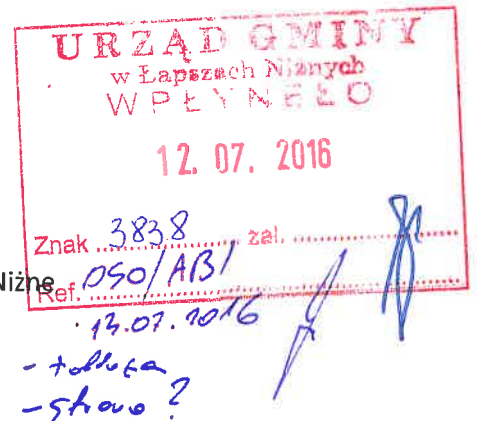 URZĄD GMINY
w Łapszach Niżnych
WPŁYNĘŁO
12. 07. 2016
Znak 3838 zał.
Niżne
Ref. OSO/ABI
13.07.2016
- tablica
- strona ?